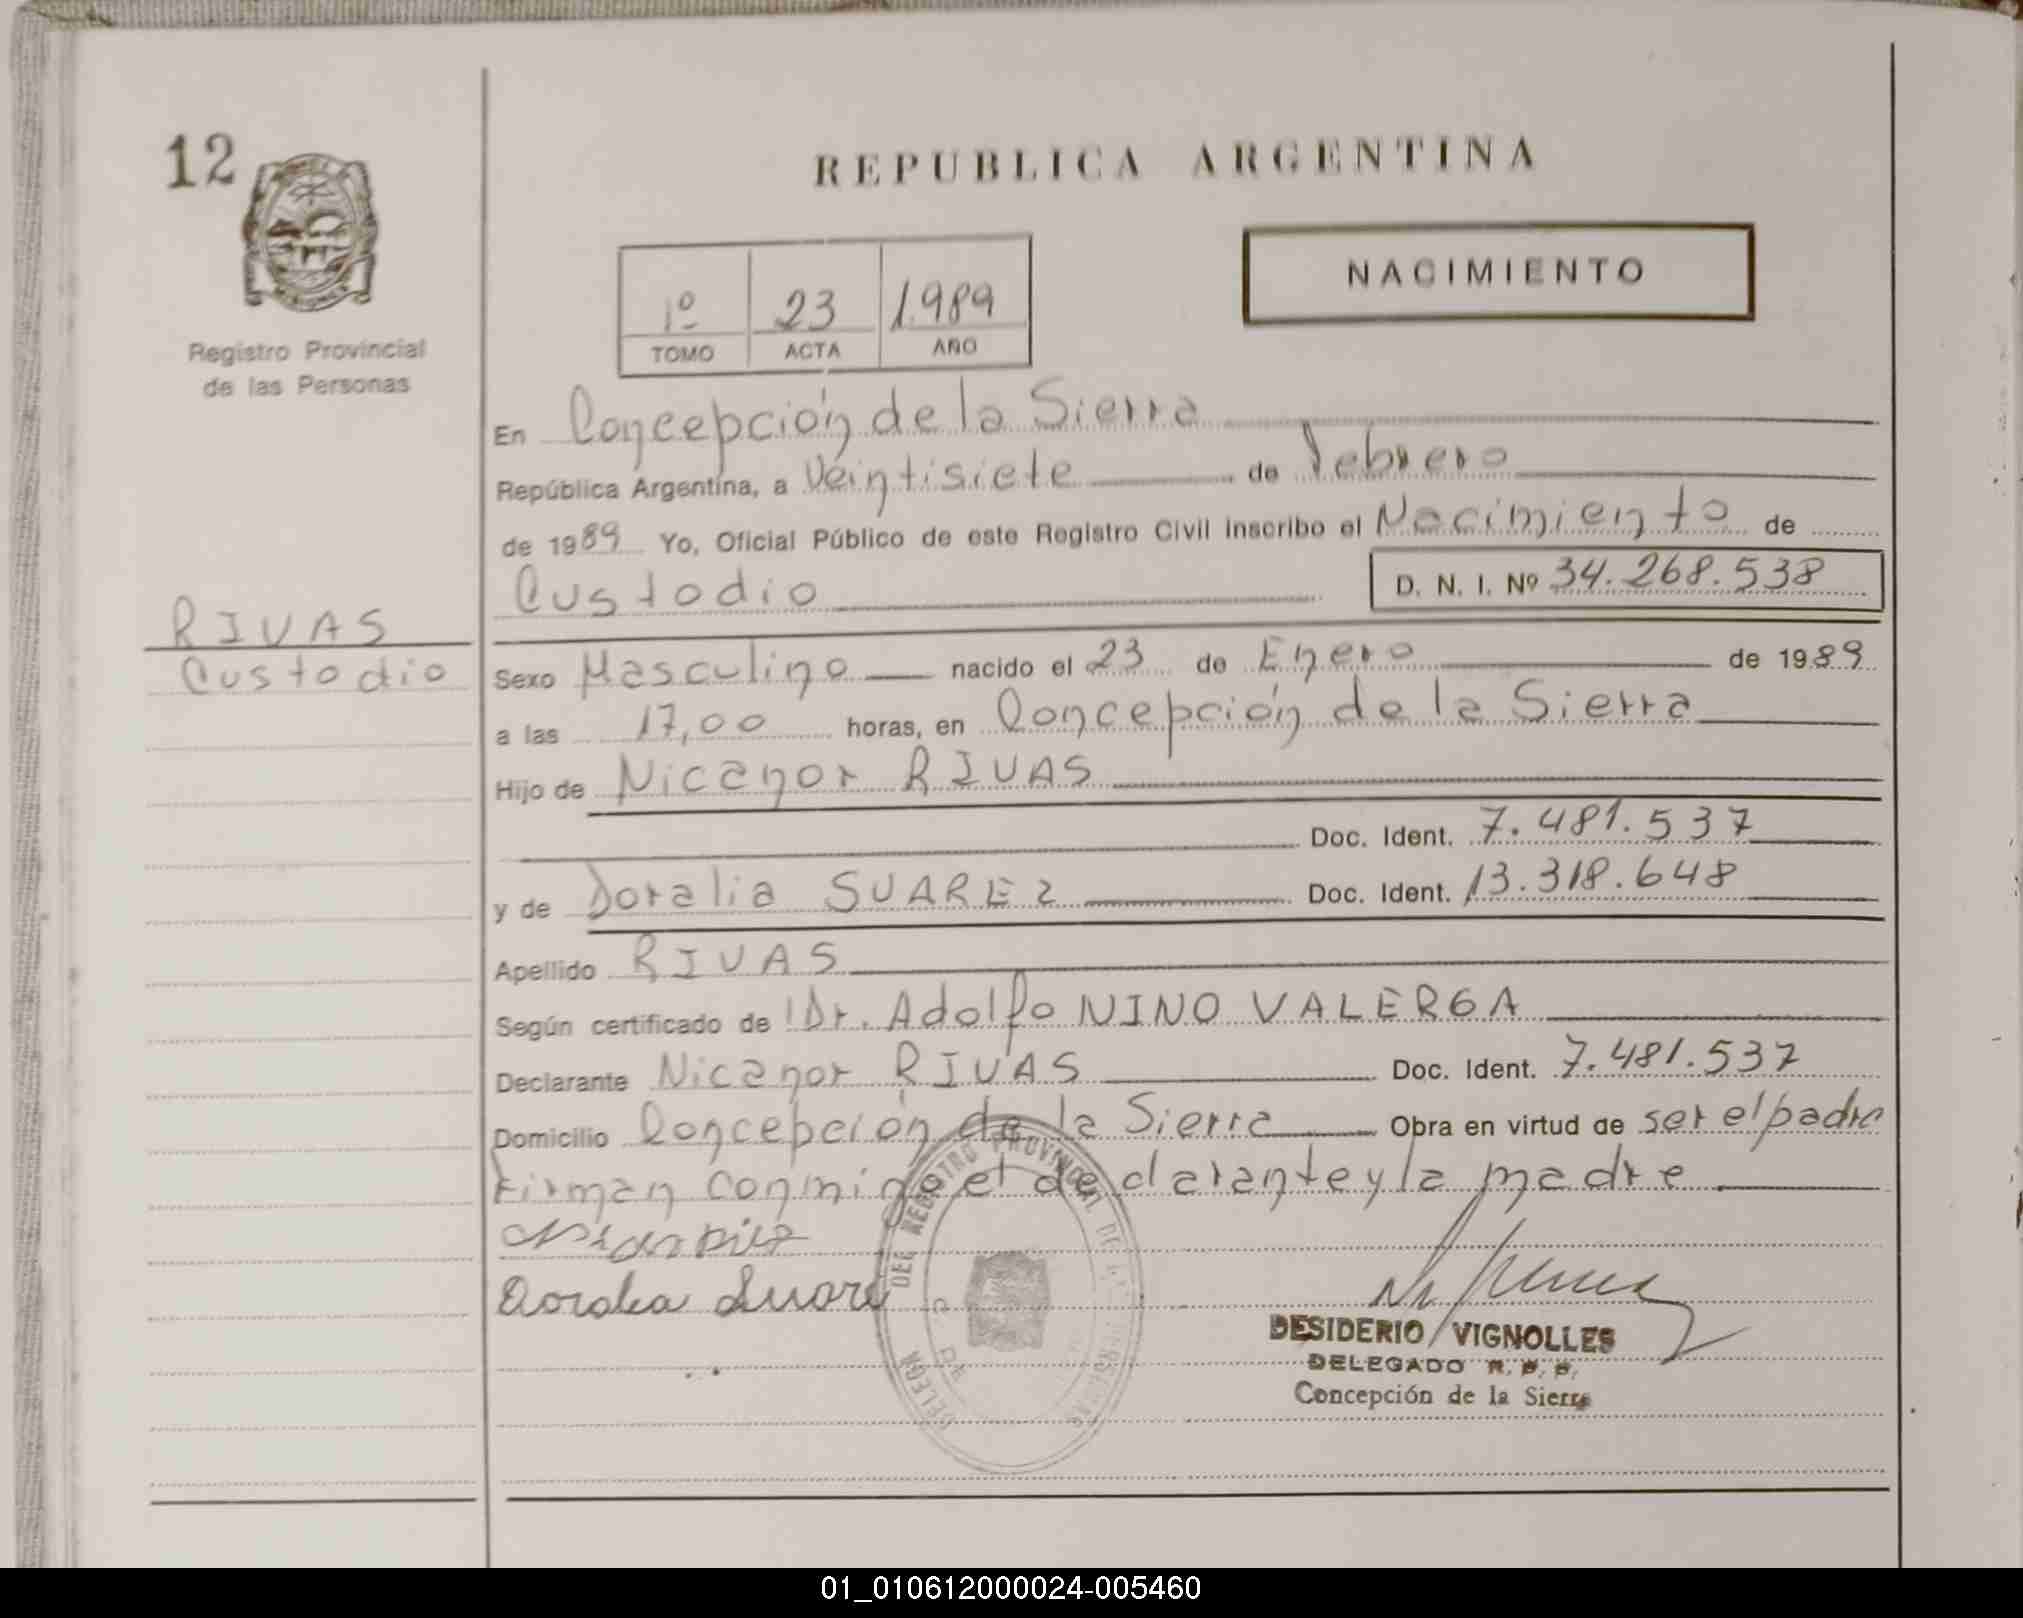 12
REPUBLICA ARGENTINA
NACIMIENTO
1º 23 1.989
TOMO ACTA AÑO
Registro Provincial
de las Personas
En Concepción de la Sierra
República Argentina, a Veintisiete de Febrero
de 1989 Yo, Oficial Público de este Registro Civil inscribo el Nacimiento de
Custodio D. N. I. Nº 34.268.538
RIVAS
Custodio
Sexo Masculino nacido el 23 de Enero de 1989
a las 17,00 horas, en Concepción de la Sierra
Hijo de Nicanor RIVAS
Doc. Ident. 7.481.537
y de Doralia SUAREZ Doc. Ident. 13.318.648
Apellido RIVAS
Según certificado de Dr. Adolfo NINO VALERGA
Declarante Nicanor RIVAS Doc. Ident. 7.481.537
Domicilio Concepción de la Sierra Obra en virtud de ser el padre
Firman conmigo el declarante y la madre
DEL REGISTRO PROVINCIAL DE
DESIDERIO VIGNOLLES
DELEGADO R. P. P.
Concepción de la Sierra
01_010612000024-005460